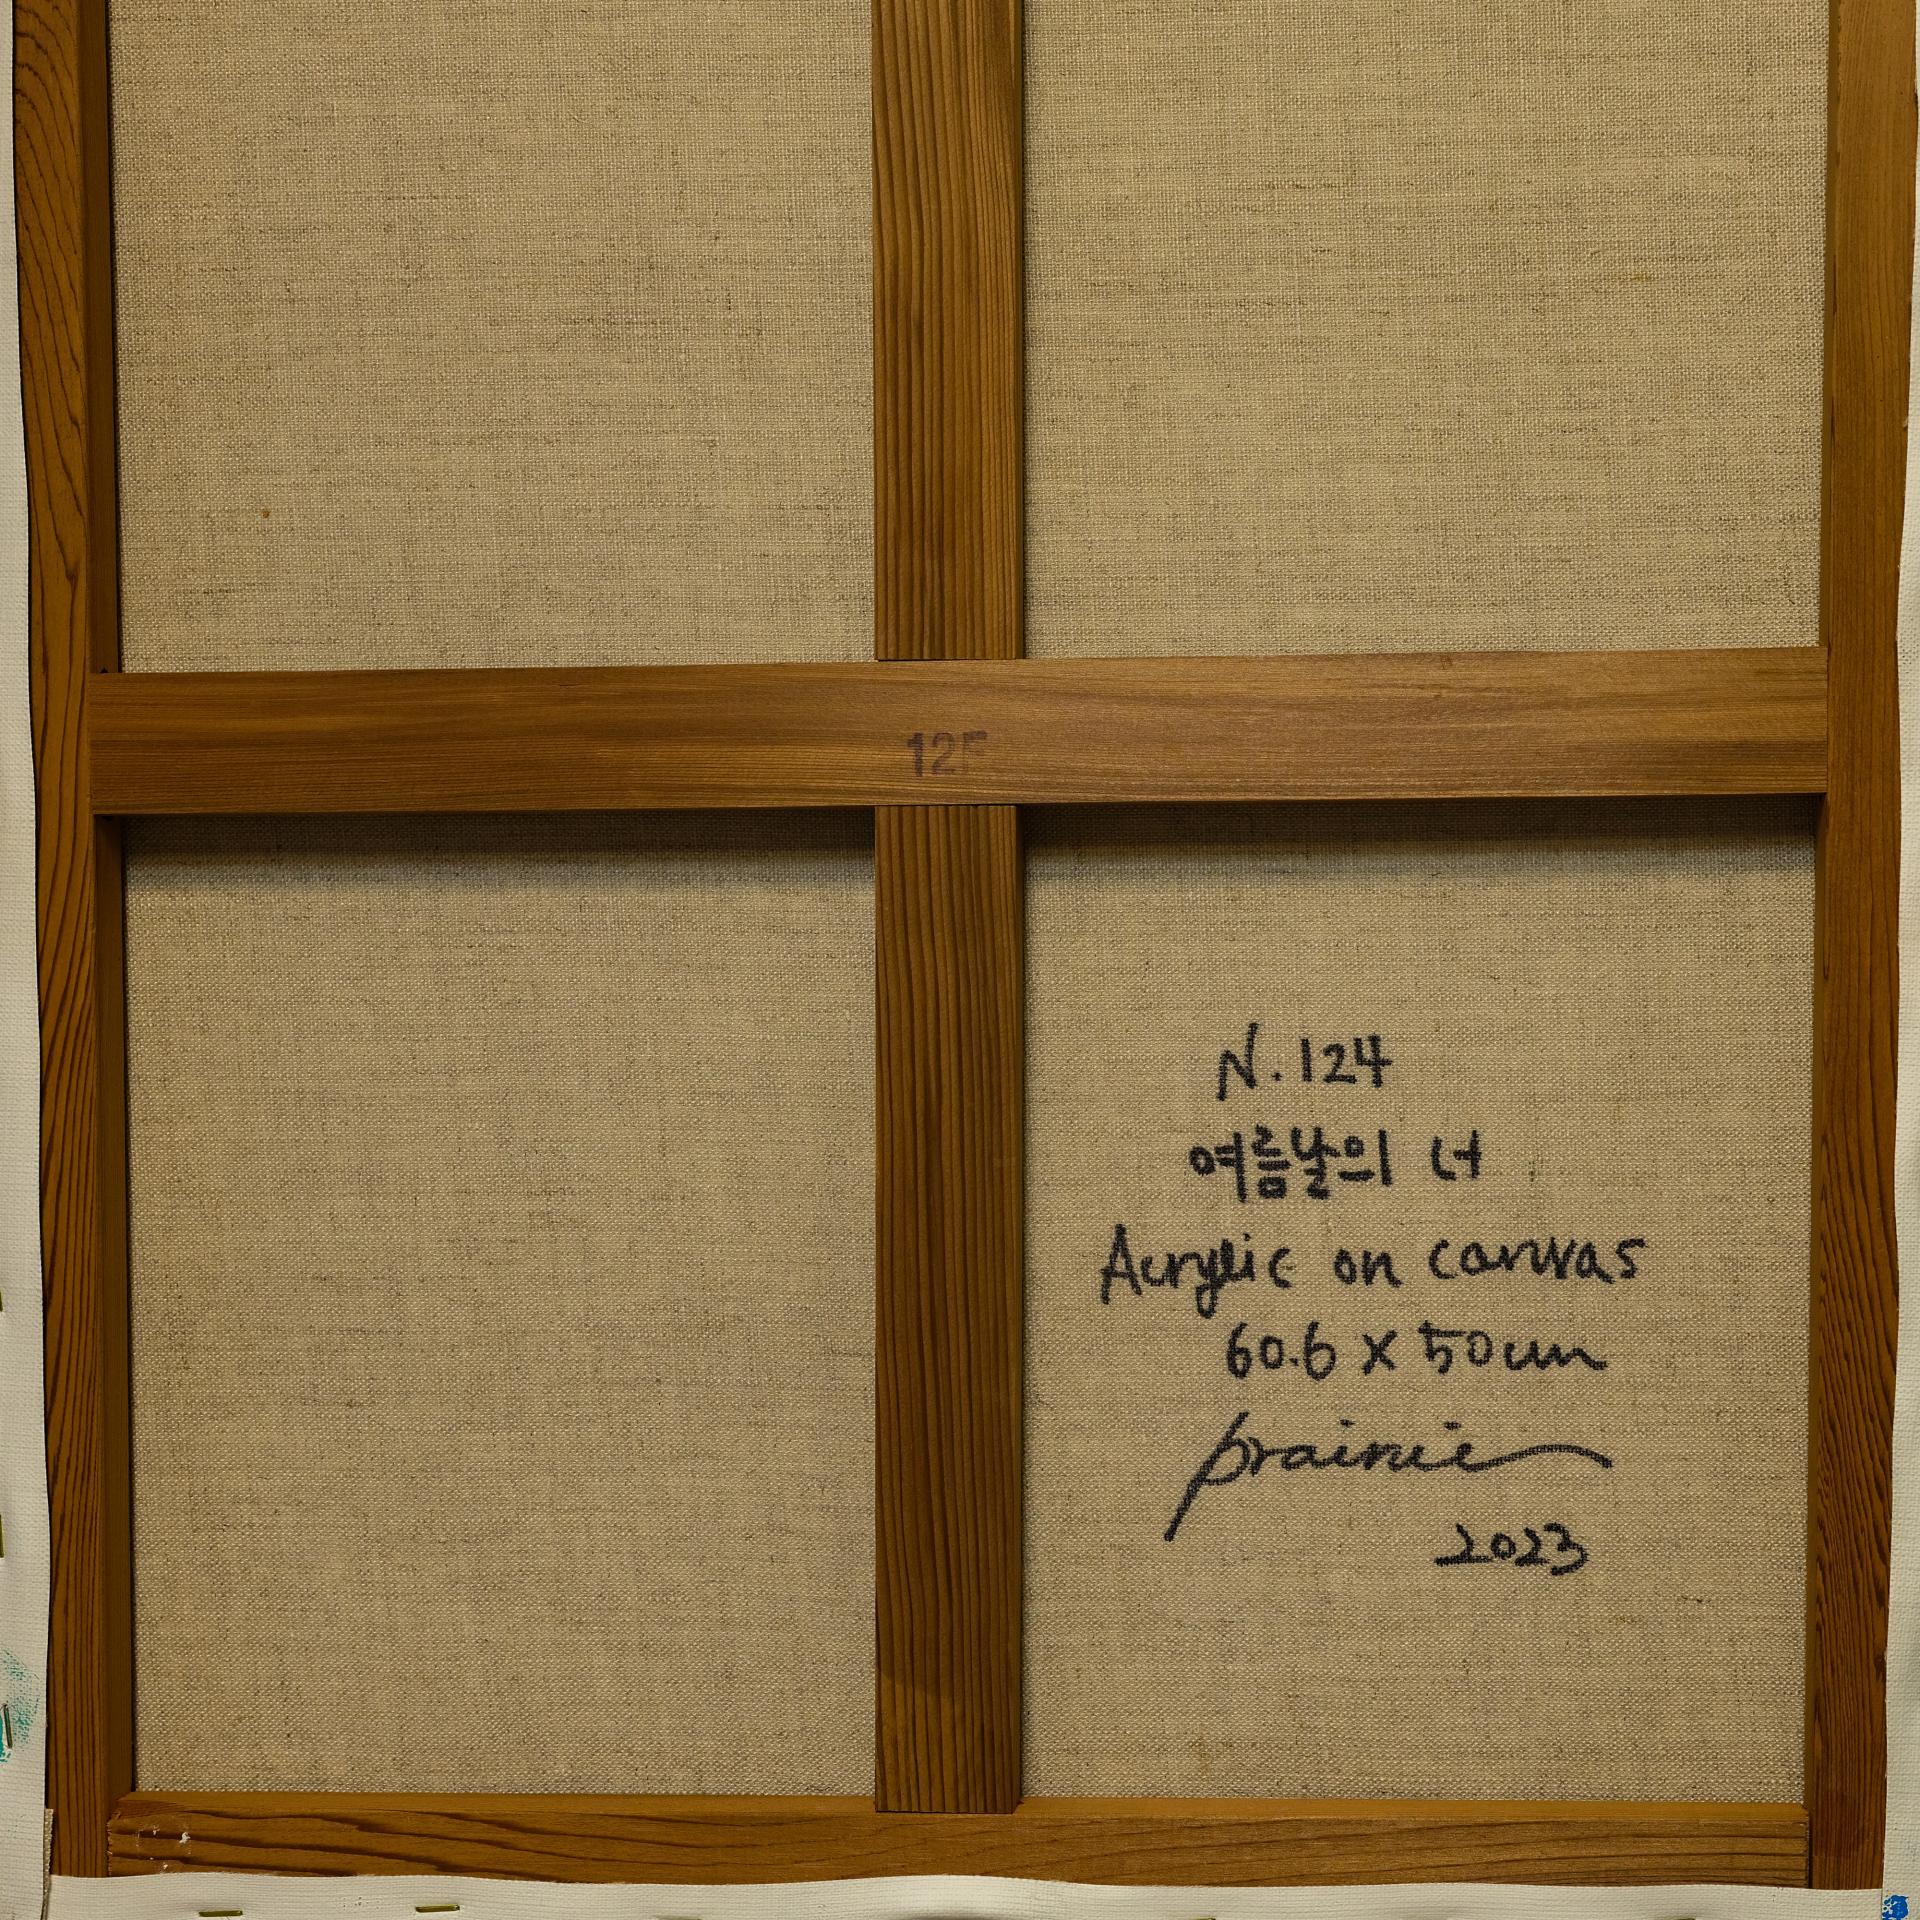 12F
N. 124
여름날의 너
Acrylic on canvas
60.6 x 50cm
prairie
2023